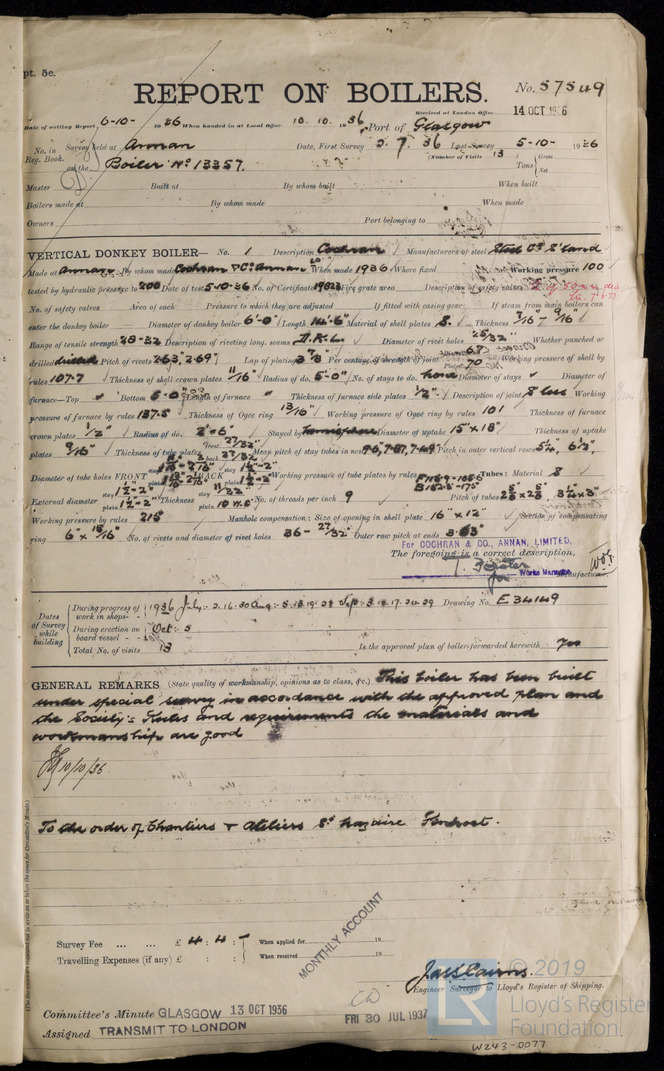 pt. 5c.
REPORT ON BOILERS.
No. 57549
Received at London Office
14 OCT 1936
Date of writing Report 6-10- 1936 When handed in at Local Office 10. 10. 1936 Port of Glasgow
No. in Survey held at Annan Date, First Survey 2. 7. 36 Last Survey 5-10- 1936
Reg. Book. (Number of Visits 13
on the Boiler No 13357. Tons Gross Net
Master Built at By whom built When built
Boilers made at By whom made When made
Owners Port belonging to
VERTICAL DONKEY BOILER— No. 1 Description Cochran Manufacturers of steel Steel Co Scotland
Made at Annan By whom made Cochran & Co. Annan Ld When made 1936 Where fixed Working pressure 100
tested by hydraulic pressure to 200 Date of test 5-10-36 No. of Certificate Fire grate area Description of safety valves
No. of safety valves Area of each Pressure to which they are adjusted If fitted with easing gear If steam from main boilers can
enter the donkey boiler Diameter of donkey boiler 6'-0" Length 14'-6" Material of shell plates S. Thickness 7/16" - 9/16"
Range of tensile strength 28-32 Description of riveting long. seams D.R.L. Diameter of rivet holes 25/32" Whether punched or
drilled drilled Pitch of rivets 2.63, 2.69" Lap of plating Per centage of strength of joint Working pressure of shell by
rules 107.7 Thickness of shell crown plates 11/16" Radius of do. 5'-0" No. of stays to do. none Diameter of stays Diameter of
furnace—Top Bottom 5'-0" Length of furnace Thickness of furnace side plates 1/2" Description of joint S'less Working
pressure of furnace by rules 137.5 Thickness of Ogee ring 13/16" Working pressure of Ogee ring by rules 101 Thickness of furnace
crown plates 1/2" Radius of do. 2'-6" Stayed by hemisphere Diameter of uptake 15"x18" Thickness of uptake
plates 9/16" Thickness of tube plates Mean pitch of stay tubes in nests Pitch in outer vertical rows
Diameter of tube holes FRONT BACK Working pressure of tube plates by rules Tubes: Material S
External diameter Thickness No. of threads per inch 9 Pitch of tubes
Working pressure by rules 215 Manhole compensation: Size of opening in shell plate 16"x12" Section of compensating
ring 6"x15/16" No. of rivets and diameter of rivet holes 36- 27/32" Outer row pitch at ends 3.63"
For COCHRAN & CO., ANNAN, LIMITED,
The foregoing is a correct description,
Works Manager Manufacturer.
Dates of Survey while building
During progress of work in shops - - 1936 July: 2. 16. 30 Aug: 5. 13. 19. 28 Sep: 3. 9. 17. 24. 29 Drawing No. E 34149
During erection on board vessel - - Oct: 5
Total No. of visits 13 Is the approved plan of boiler forwarded herewith Yes
GENERAL REMARKS (State quality of workmanship, opinions as to class, &c.) This boiler has been built
under special survey in accordance with the approved plan and
the Society's Rules and requirements the materials and
workmanship are good
10/10/36
To the order of Chantiers & Ateliers St Nazaire Penhoet.
Survey Fee ... ... £ 4 : 4 : - When applied for 19
Travelling Expenses (if any) £ : : When received 19
MONTHLY ACCOUNT
Jas Cairns.
Engineer Surveyor to Lloyd's Register of Shipping.
Committee's Minute GLASGOW 13 OCT 1936
FRI 30 JUL 1937
Assigned TRANSMIT TO LONDON
© 2019
Lloyd's Register
Foundation
W243-0077